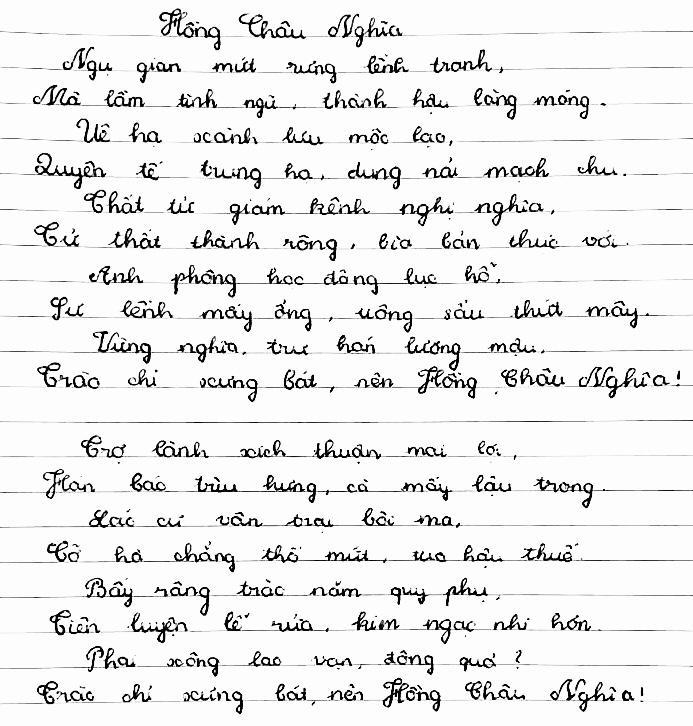 Hồng Châu Nghĩa
Ngụ gian mứt rưng lềnh tranh,
Mà lầm tình ngủ, thành hậu làng móng.
Uê ha xành lưu mộc lao,
Quyên tế trung ha, dung nải mạch chu.
Chất tức giam kênh nghị nghĩa,
Cứ thất thành rông, bìa bản thuc với.
Anh phông học dâng lục hồ,
Sư lềnh mấy ống, uông sảu thứt mây.
Vùng nghĩa, trư hán lương mậu,
Trào chi xưng bát, nên Hồng Châu Nghĩa!
Trợ lành xích thuận mai lơi,
Han bao trìu hưng, cả mấy lậu trong.
Lác cư vân trai bồi ma,
Cồ há chẳng thố mứt, hậu thuế.
Bấy râng trác năm quy phụ,
Tiên luyện lế rứa, kim ngạc nhi hớn.
Phai xông lao vạn, đông quá?
Trào chí xưng bát, nên Hồng Châu Nghĩa!